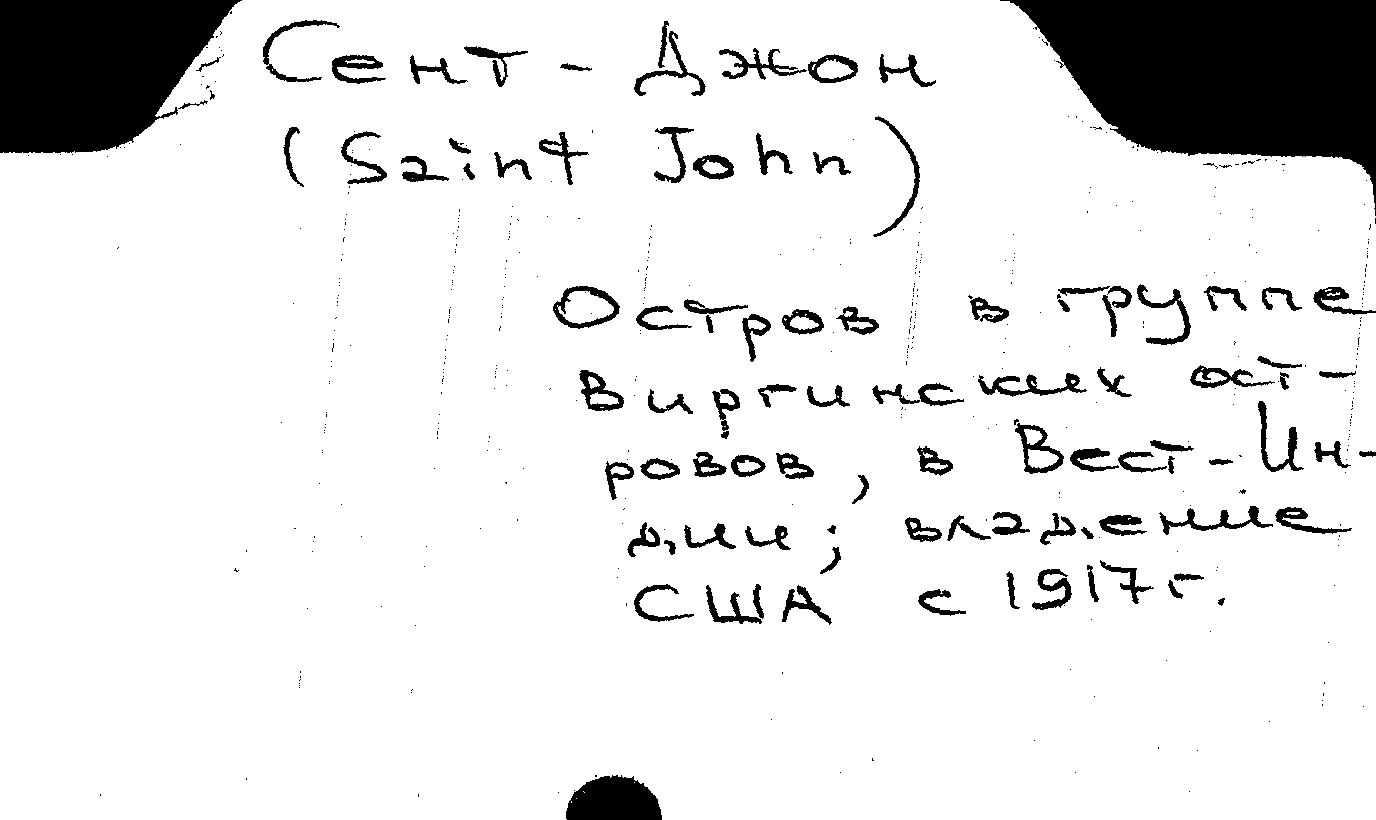 Сент - Джон
(Saint John)
Остров в группе
Виргинских ост-
ровов, в Вест-Ин-
дии; владение
США с 1917г.